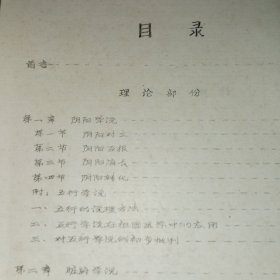 目录
前言
理论部份
第一章 阴阳学说
第一节 阴阳对立
第二节 阴阳互根
第三节 阴阳消长
第四节 阴阳转化
附：五行学说
一、五行的演绎方法
二、五行学说在祖国医学中的应用
三、对五行学说的初步批判
第二章 脏腑学说